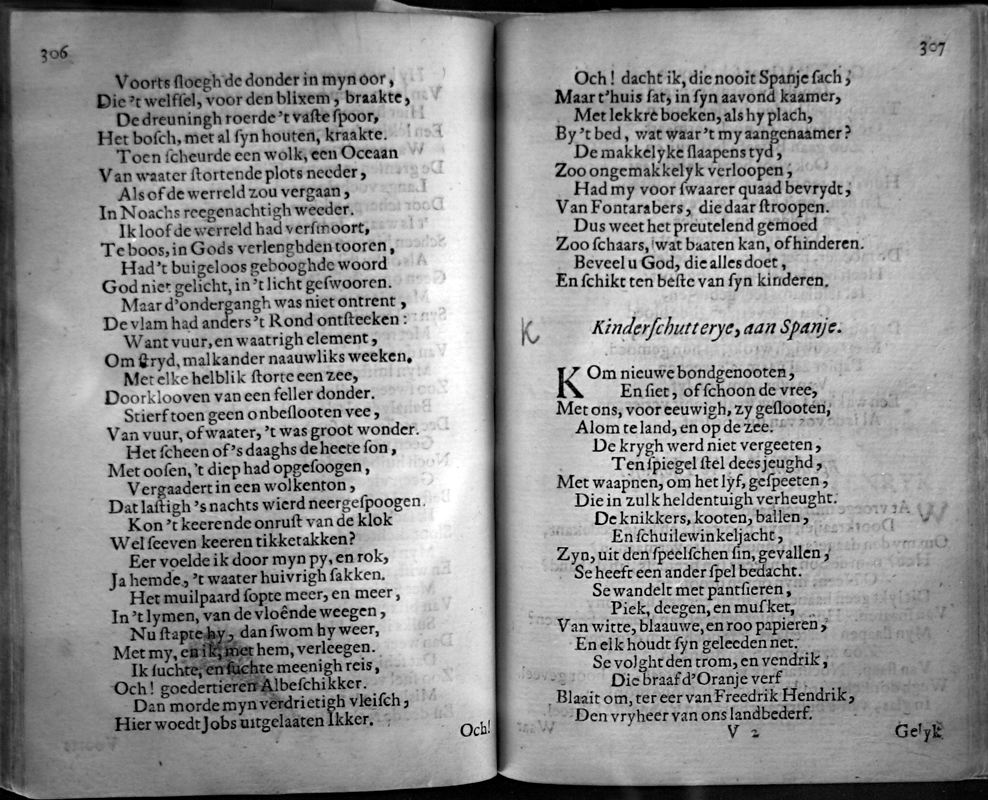 306
Voorts ſloegh de donder in myn oor,
Die 't welfſel, voor den blixem, braakte,
De dreuningh roerde 't vaſte ſpoor,
Het boſch, met al ſyn houten, kraakte.
Toen ſcheurde een wolk, een Oceaan
Van waater ſtortende plots needer,
Als of de werreld zou vergaan,
In Noachs reegenachtigh weeder.
Ik loof de werreld had verſmoort,
Te boos, in Gods verlenghden tooren,
Had't buigeloos gebooghde woord
God niet gelicht, in 't licht geſwooren.
Maar d'ondergangh was niet ontrent,
De vlam had anders 't Rond ontſteeken:
Want vuur, en waatrigh element,
Om ſtryd, malkander naauwliks weeken.
Met elke helblik ſtorte een zee,
Doorklooven van een feller donder.
Stierf toen geen onbeſlooten vee,
Van vuur, of waater, 't was groot wonder.
Het ſcheen of 's daaghs de heete ſon,
Met ooſen, 't diep had opgeſoogen,
Vergaadert in een wolkenton,
Dat laſtigh 's nachts wierd neergeſpoogen.
Kon 't keerende onruſt van de klok
Wel ſeeven keeren tikketakken?
Eer voelde ik door myn py, en rok,
Ja hemde, 't waater huivrigh ſakken.
Het muilpaard ſopte meer, en meer,
In 't lymen, van de vloênde weegen,
Nu ſtapte hy, dan ſwom hy weer,
Met my, en ik, met hem, verleegen.
Ik ſuchte, en ſuchte meenigh reis,
Och! goedertieren Albeſchikker.
Dan morde myn verdrietigh vleiſch,
Hier woedt Jobs uitgelaaten Ikker.
Och!
307
Och! dacht ik, die nooit Spanje ſach,
Maar t'huis ſat, in ſyn aavond kaamer,
Met lekkre boeken, als hy plach,
By 't bed, wat waar't my aangenaamer?
De makkelyke ſlaapens tyd,
Zoo ongemakkelyk verloopen,
Had my voor ſwaarer quaad bevrydt,
Van Fontarabers, die daar ſtroopen.
Dus weet het preutelend gemoed
Zoo ſchaars, wat baaten kan, of hinderen.
Beveel u God, die alles doet,
En ſchikt ten beſte van ſyn kinderen.
K
Kinderſchutterye, aan Spanje.
KOm nieuwe bondgenooten,
En ſiet, of ſchoon de vree,
Met ons, voor eeuwigh, zy geſlooten,
Alom te land, en op de zee.
De krygh werd niet vergeeten,
Ten ſpiegel ſtel dees jeughd,
Met waapnen, om het lyf, geſpeeten,
Die in zulk heldentuigh verheught.
De knikkers, kooten, ballen,
En ſchuilewinkeljacht,
Zyn, uit den ſpeelſchen ſin, gevallen,
Se heeft een ander ſpel bedacht.
Se wandelt met pantſieren,
Piek, deegen, en muſket,
Van witte, blaauwe, en roo papieren,
En elk houdt ſyn geleeden net.
Se volght den trom, en vendrik,
Die braaf d'Oranje verf
Blaait om, ter eer van Freedrik Hendrik,
Den vryheer van ons landbederf.
V 2
Gelyk